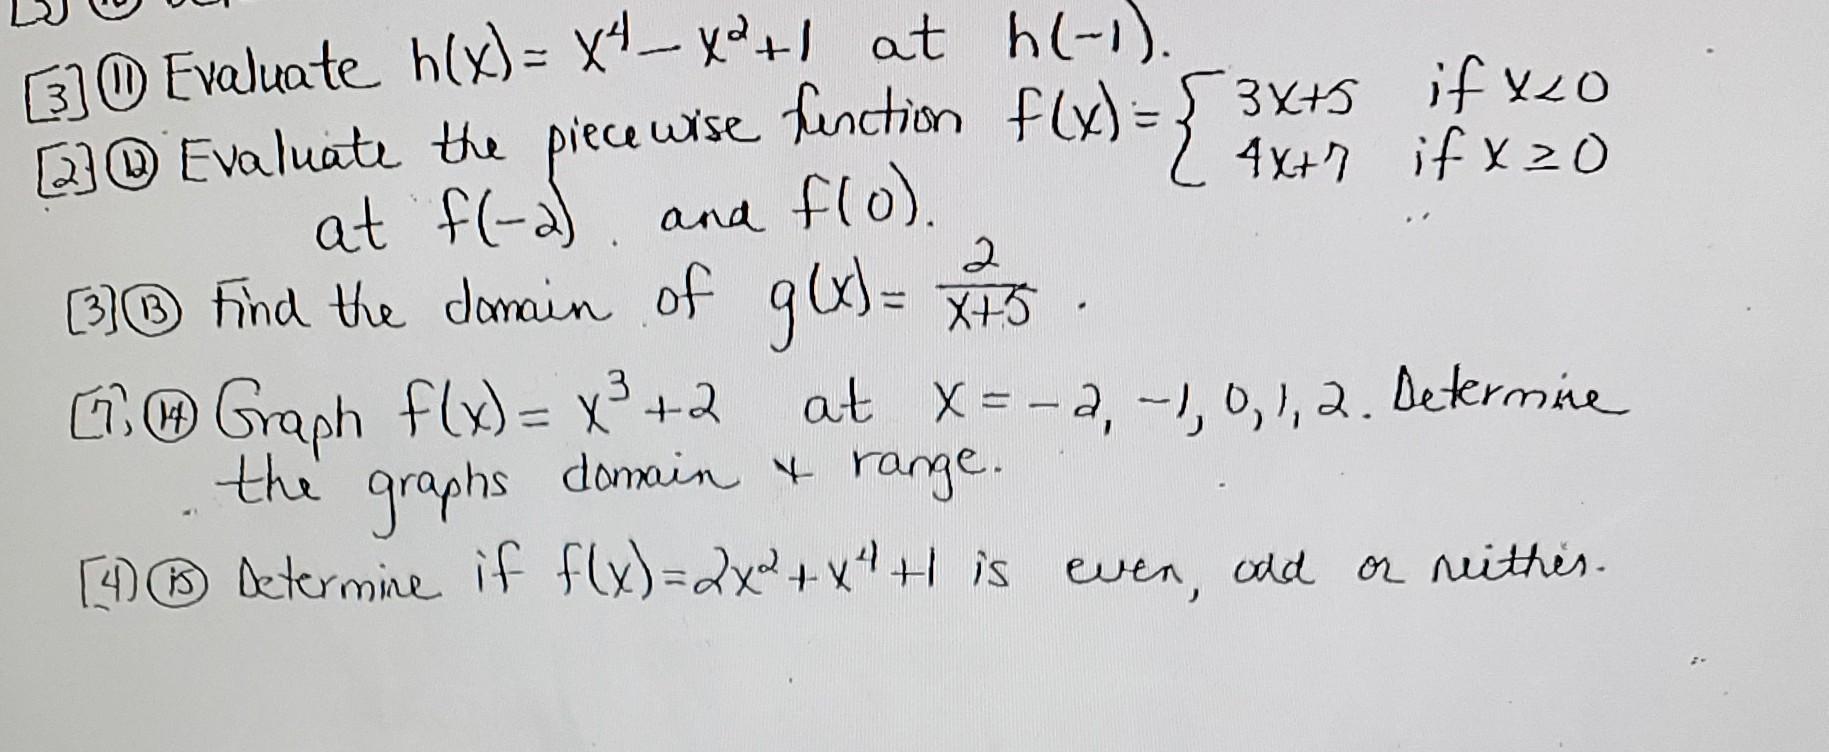 [3] ⑪ Evaluate h(x) = x⁴ − x² + 1 at h(-1).
[2] ⑫ Evaluate the piecewise function f(x) = { 3x+5 if x<0
4x+7 if x ≥ 0
at f(-2). and f(0).
[3] ⑬ Find the domain of g(x) = 2/(x+5).
[7] ⑭ Graph f(x) = x³ + 2 at x = -2, -1, 0, 1, 2. Determine
the graphs domain & range.
[4] ⑮ Determine if f(x) = 2x² + x⁴ + 1 is even, odd or neither.